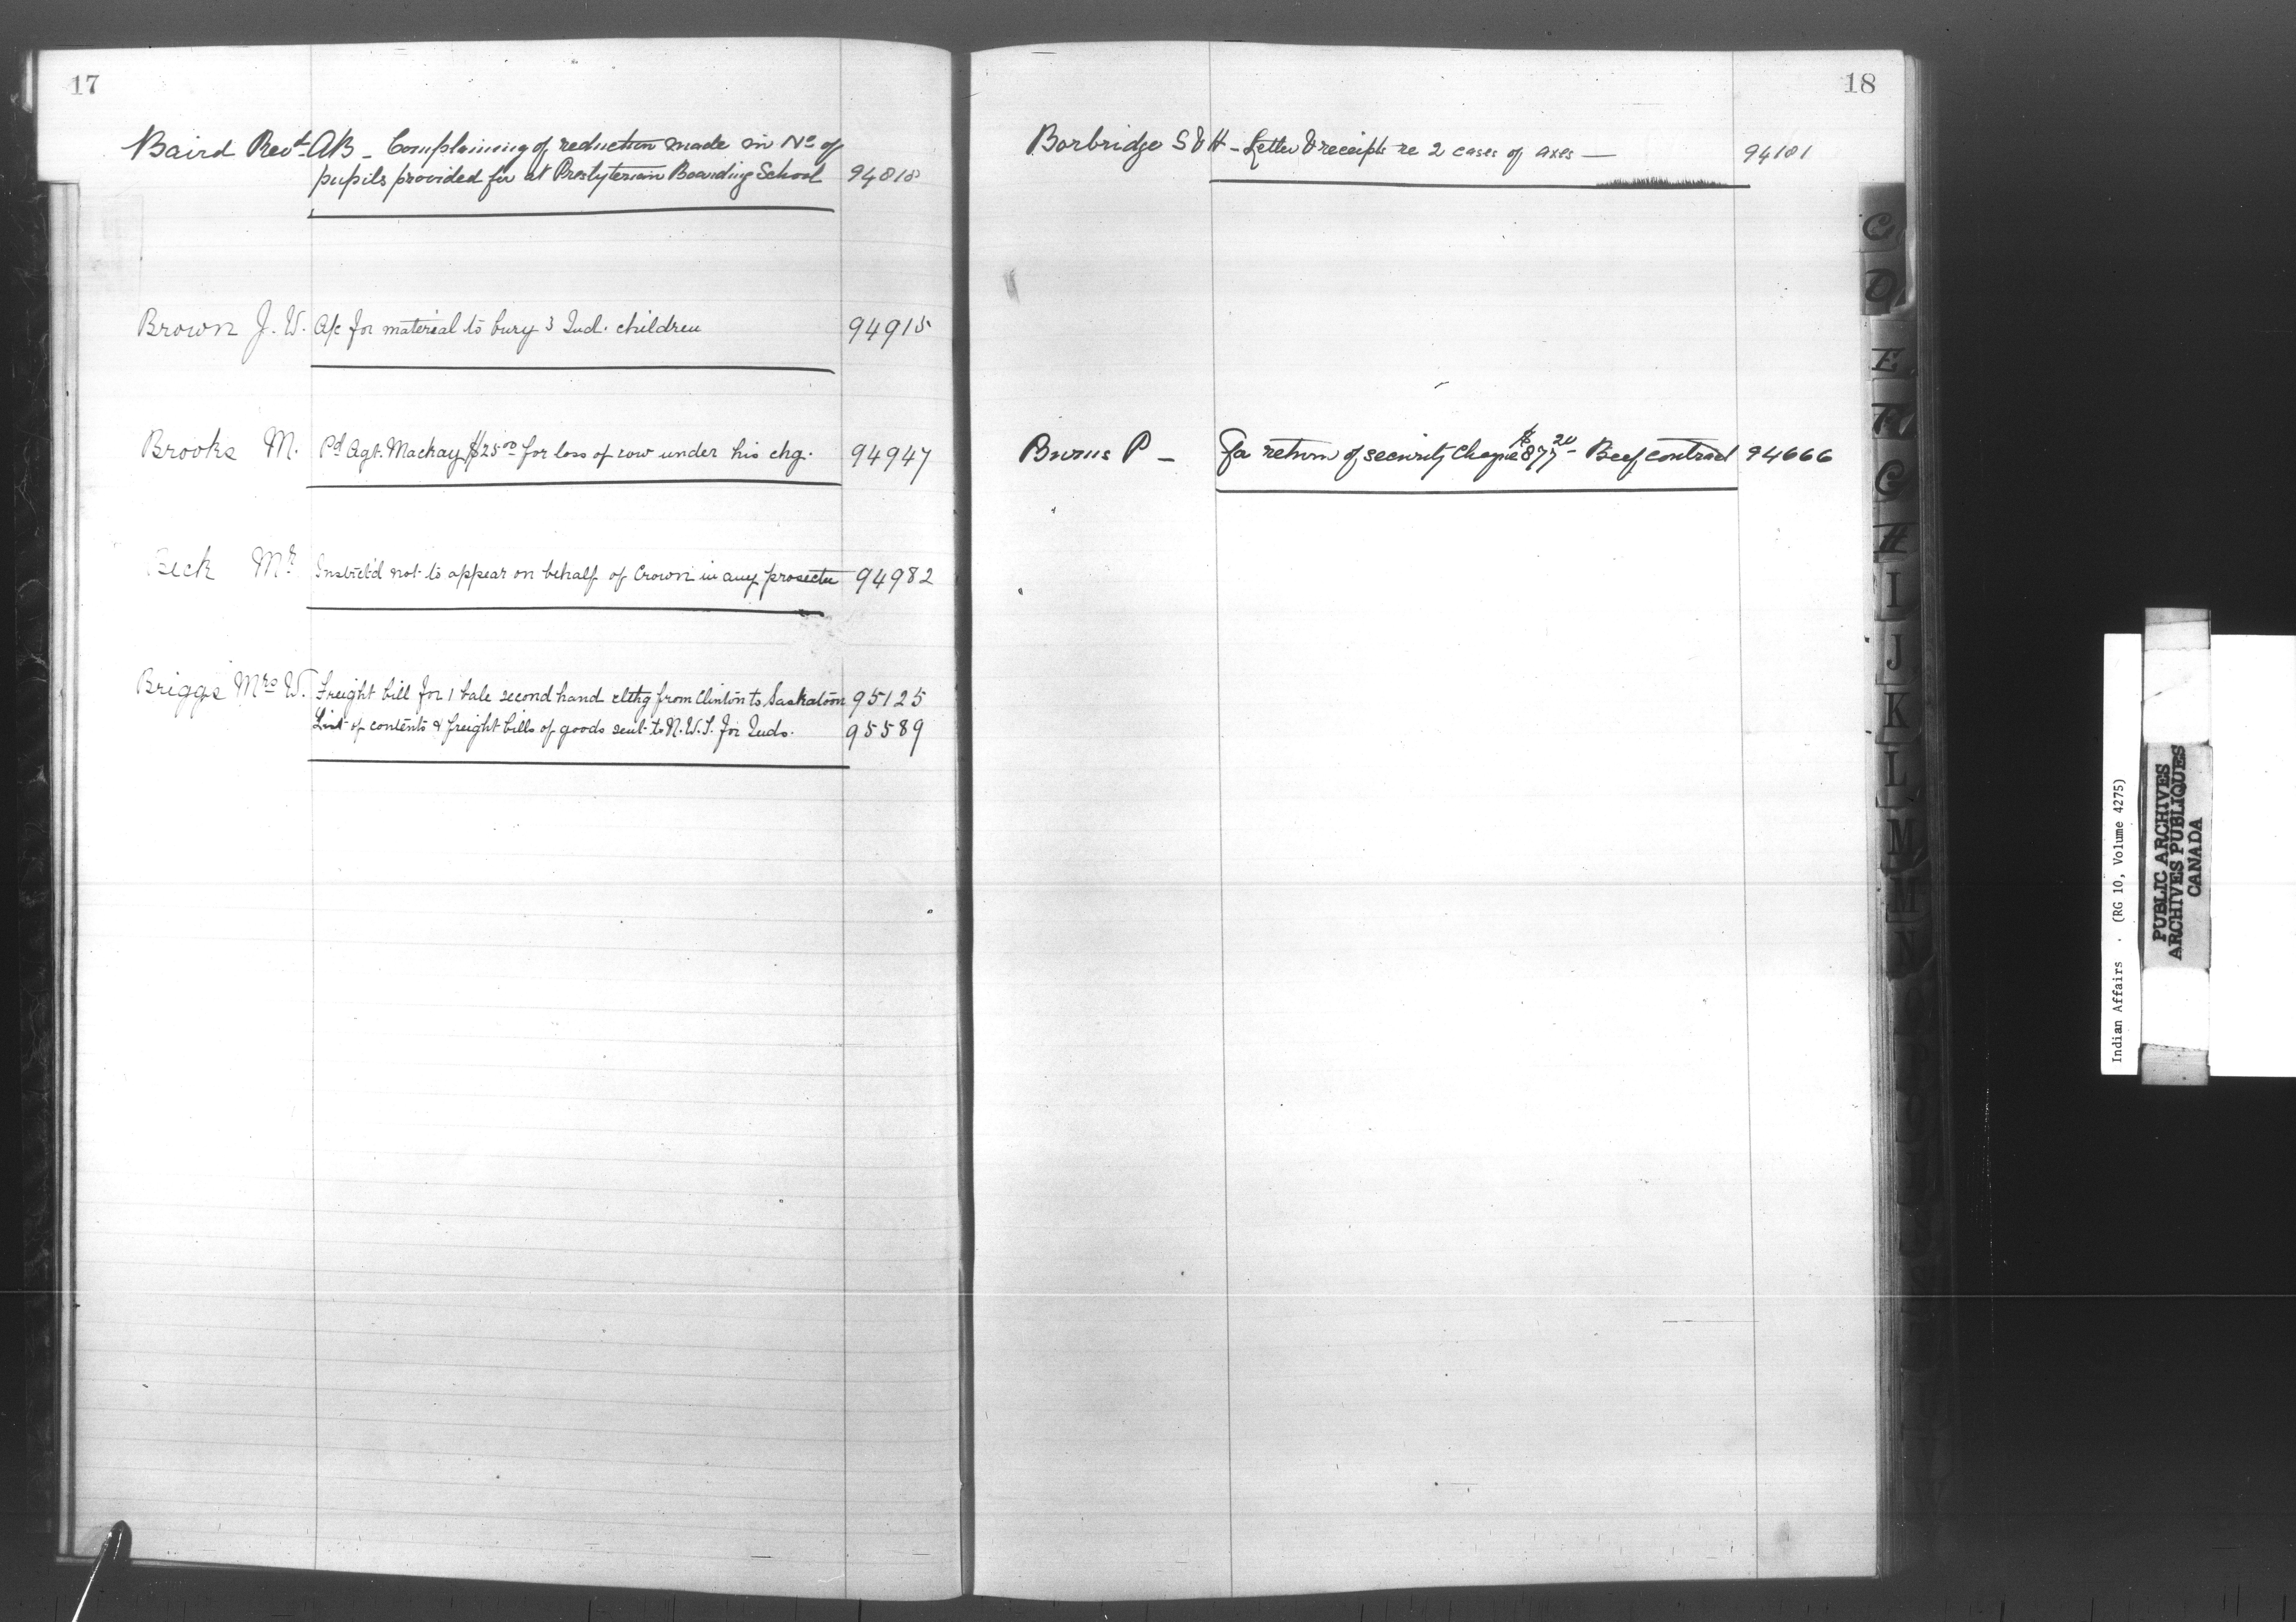 17
Baird Revd AB - Complaining of reduction made in No of
pupils provided for at Presbyterian Boarding School 94818
Brown J. W. A/c for material to bury 3 Ind. children 94915
Brooks M. Pd Agt. Mackay $25.00 for loss of cow under his chg. 94947
Beck Mr Instrct'd not to appear on behalf of Crown in any prosectn 94982
Briggs Mrs W. Freight bill for 1 bale second hand clthg from Clinton to Saskatoon 95125
List of contents & freight bills of goods sent to N.W.T. for Inds. 95589
18
Borbridge S & H - Letter & receipts re 2 cases of axes — 94101
Burns P - For return of security cheque $877 20 - Beef contract 94666
C
D
E
F
G
H
I
J
K
L
M
M
N
Indian Affairs . (RG 10, Volume 4275)
PUBLIC ARCHIVES
ARCHIVES PUBLIQUES
CANADA